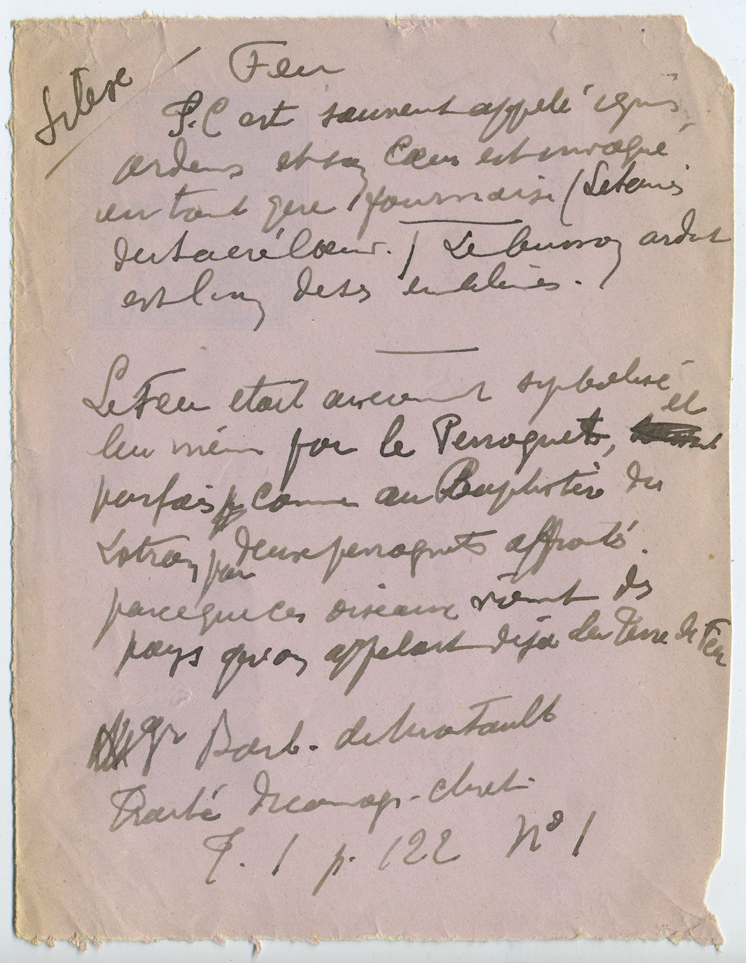 Feu
J.C est souvent appelé ignis
ardens et son Cœur est invoqué
en tant que fournaise (Litanies
du Sacré Cœur.) Le buisson ardent
est l'un de ses emblèmes.
Le Feu était anciennement symbolisé
lui même par le Perroquet, et
parfois comme au Baptistère du
Latran par deux perroquets affronté.
parce que ces oiseaux viennent des
pays qu'on appelait déjà la Terre de Feu
Mgr Barb. de Montault
Traité d'iconogr. chret.
T. 1 p. 122 N° 1